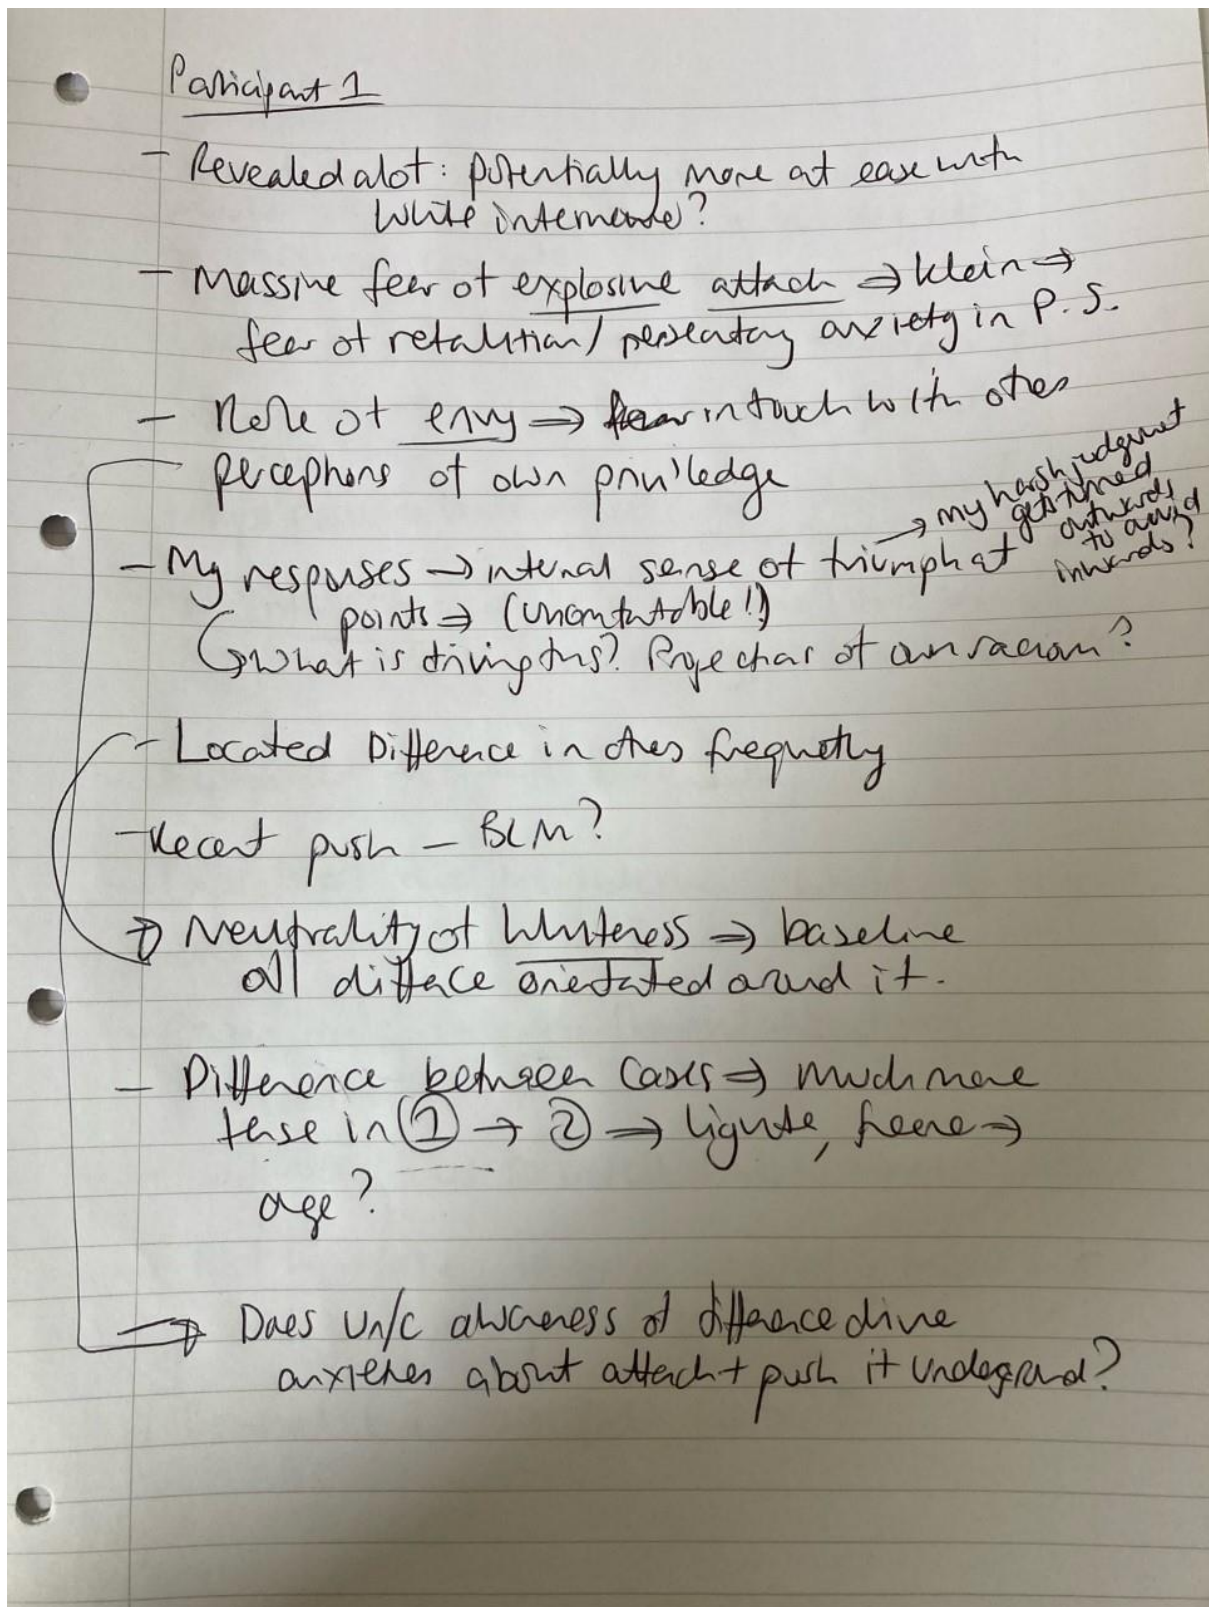 Participant 1
- Revealed a lot: potentially more at ease with
White interviewer?
- Massive fear of explosive attack ⇒ Klein ⇒
fear of retalition / persecatory anxiety in P.S.
- Role of envy ⇒ in touch with others
perceptions of own priviledge
- My responses → internal sense of triumph at
→ my harsh judgment
gets turned
outwards
to avoid
inwards?
points ⇒ (uncomfortable!!)
What is driving this? Projections of own racism?
- Located Difference in others frequetly
- Recent push - BLM?
Neutrality of Whiteness ⇒ baseline
all difface orientated around it.
- Difference between Cases ⇒ much more
tense in ① → ② ⇒
age?
⇒ Does un/c awareness of difference drive
anxieties about attack + push it underground?